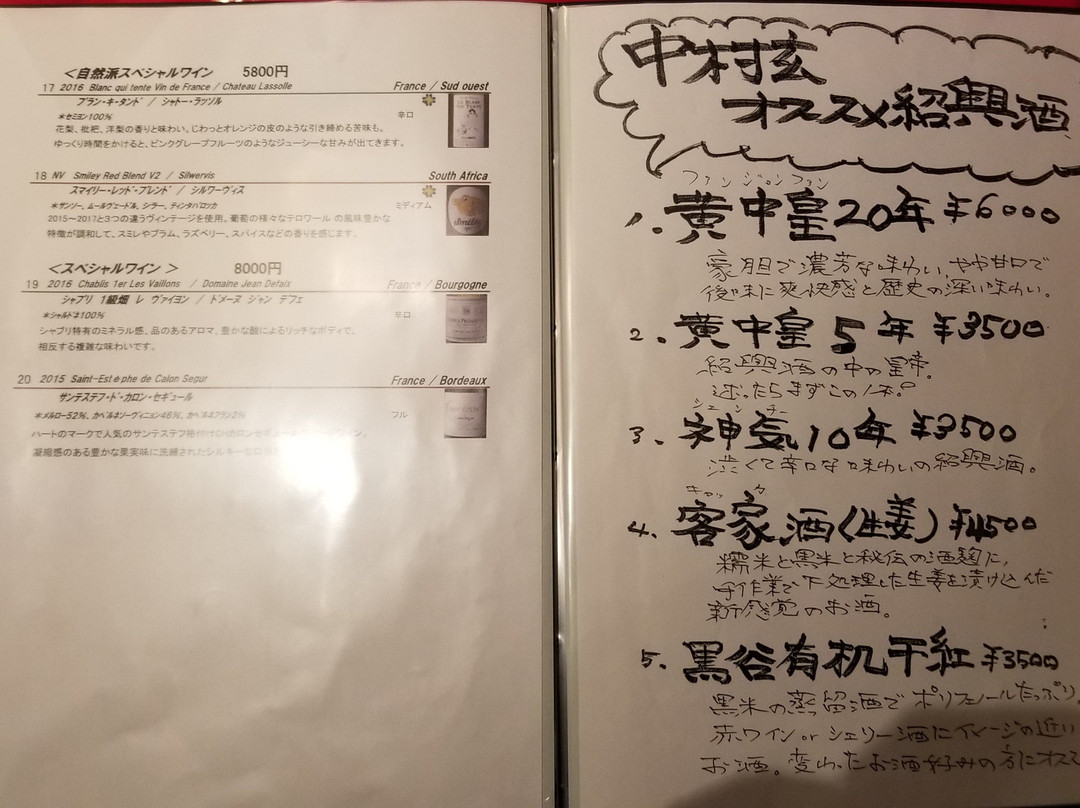 ＜自然派スペシャルワイン　5800円
17 2016 Blanc qui tente Vin de France / Chateau Lassolle France / Sud ouest
ブラン・キ・タンド / シャトー・ラッソル
＊セミヨン100% 辛口
花梨、枇杷、洋梨の香りと味わい。じわっとオレンジの皮のような引き締める苦味も。
ゆっくり時間をかけると、ピンクグレープフルーツのようなジューシーな甘みが出てきます。
18 NV Smiley Red Blend V2 / Silwervis South Africa
スマイリー・レッド・ブレンド / シルワーヴィス
＊サンソー、ムールヴェードル、シラー、ティンタバロッカ ミディアム
2015～2017と3つの違うヴィンテージを使用。葡萄の様々なテロワール の風味豊かな
特徴が調和して、スミレやプラム、ラズベリー、スパイスなどの香りを感じます。
＜スペシャルワイン ＞　8000円
19 2016 Chablis 1er Les Vaillons / Domaine Jean Defaix France / Bourgogne
シャブリ 1級畑 レ ヴァイヨン / ドメーヌ ジャン デフェ
＊シャルドネ100% 辛口
シャブリ特有のミネラル感、品のあるアロマ、豊かな酸によるリッチなボディで、
相反する複雑な味わいです。
20 2015 Saint-Estèphe de Calon Segur France / Bordeaux
サンテステフ・ド・カロン・セギュール
＊メルロー52%、カベルネソーヴィニョン46%、カベルネフラン2% フル
ハートのマークで人気のサンテステフ格付け
凝縮感のある豊かな果実味に洗練されたシルキーな
中村玄
オススメ紹興酒
ファンジョンファン
1. 黄中皇20年 ¥6000
豪胆で濃芳な味わい、やや甘口で
後味に爽快感と歴史の深い味わい。
2. 黄中皇 5年 ¥3500
紹興酒の中の皇帝。
迷ったらまずこの1本。
シェンチー
3. 神気10年 ¥3500
渋くて辛口な味わいの紹興酒。
キャッカ
4. 客家酒（生姜）¥4500
糯米と黒米と秘伝の酒麹に、
手作業で下処理した生姜を漬け込んだ
新感覚のお酒。
5. 黒谷有机干紅 ¥3500
黒米の蒸留酒でポリフェノールたっぷり。
赤ワイン or シェリー酒にイメージの近い
お酒。変わったお酒好みの方にオスス